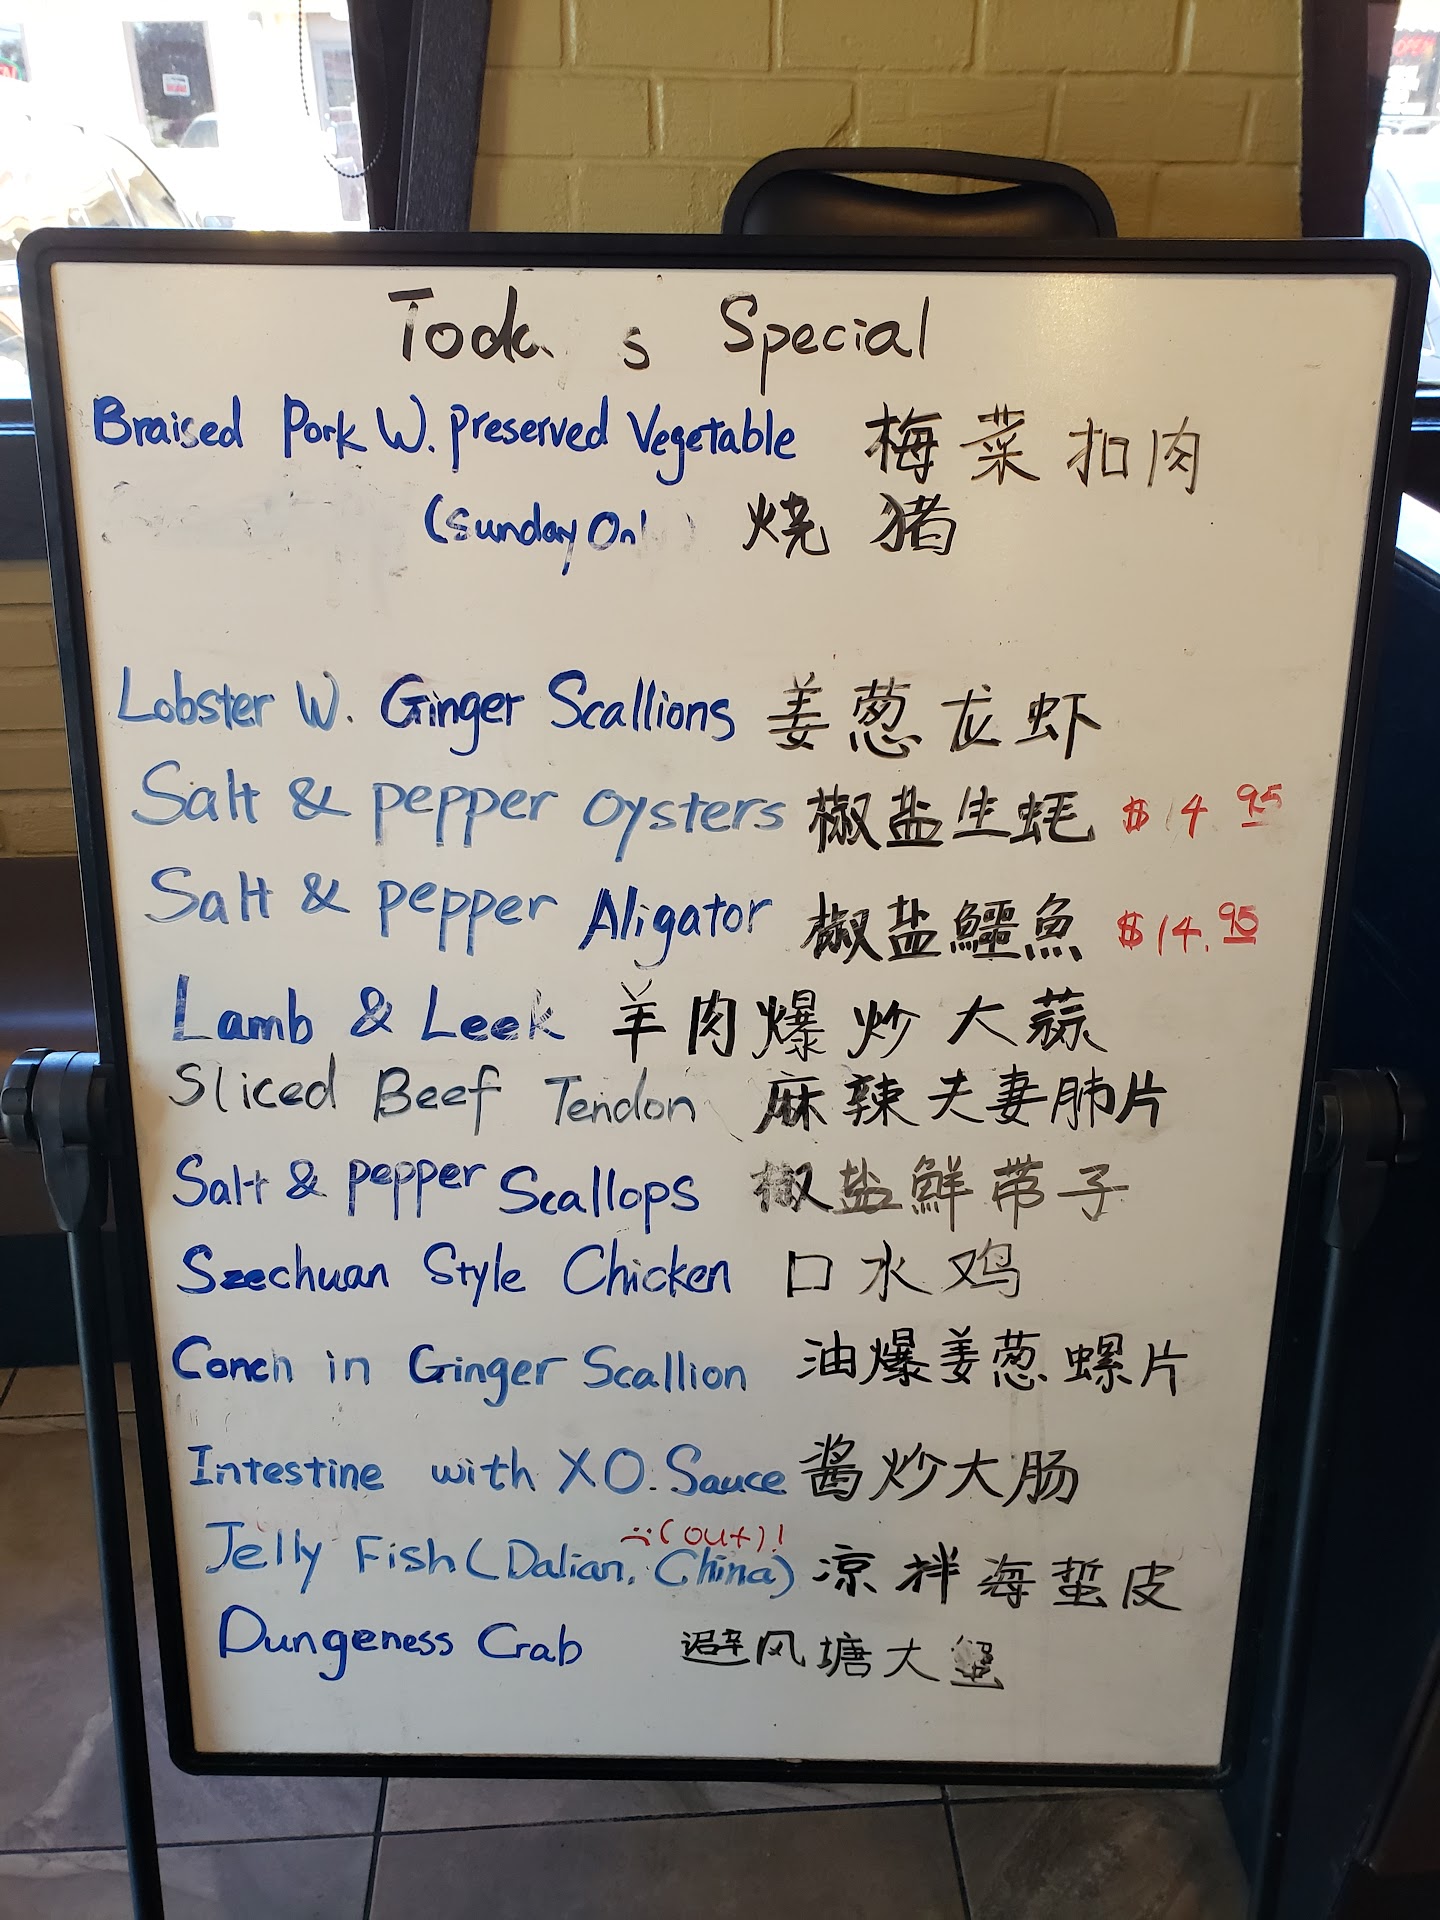 Toda s Special
Braised Pork W. preserved Vegetable 梅菜扣肉
(Sunday Onl ) 烧猪
Lobster W. Ginger Scallions 姜葱龙虾
Salt & pepper oysters 椒盐生蚝 $14.95
Salt & pepper Aligator 椒盐鱷魚 $14.95
Lamb & Leek 羊肉爆炒大蒜
Sliced Beef Tendon 麻辣夫妻肺片
Salt & pepper Scallops 椒盐鮮带子
Szechuan Style Chicken 口水鸡
Conch in Ginger Scallion 油爆姜葱螺片
Intestine with XO. Sauce 酱炒大肠
:( (out)!
Jelly Fish (Dalian, China) 凉拌海蜇皮
Dungeness Crab 避风塘大蟹